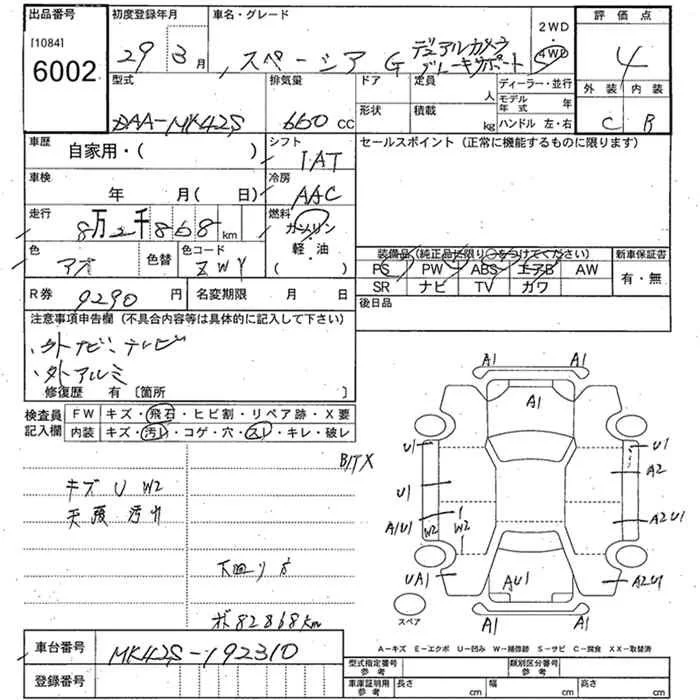 出品番号 初度登録年月 車名・グレード 2WD・4WD 評価点
[1084]
6002
29 3月 スペーシア G デュアルカメラ ブレーキサポート 4
型式 排気量 ドア 定員 人 ディーラー・並行 外装 内装
DAA-MK42S 660 cc 形状 積載 kg モデル年式 年 C B
ハンドル 左・右
車歴 自家用・( ) シフト IAT セールスポイント (正常に機能するものに限ります)
車検 年 月( 日) 冷房 AAC
走行 8万2千868 km 燃料 ガソリン・軽・油 ( )
色 色替 色コード ZWY
装備品(純正品に限り○をつけてください) 新車保証書
PS PW ABS エアB AW 有・無
SR ナビ TV カワ
R券 9290 円 名変期限 月 日 後日品
注意事項申告欄 (不具合内容等は具体的に記入して下さい)
・外ナビ・テレビ
・外アルミ
修復歴 有 〔箇所 〕
検査員記入欄 FW キズ・飛石・ヒビ割・リペア跡・X要
内装 キズ・汚レ・コゲ・穴・スレ・キレ・破レ
キズ U W2
天張 汚れ
82868km
A1 A1
A1
U1 U1
A2
U1
A1U1 W2 W2 A2U1
UA1 AU1 A2U1
A1 A1
スペア
A-キズ E-エクボ U-凹み W-補修跡 S-サビ C-腐食 XX-取替済
車台番号 MK42S-192310
登録番号
型式指定番号 参考 類別区分番号 参考
車庫証明用 参考 長さ cm 幅 cm 高さ cm